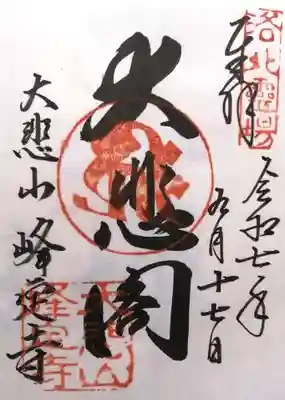 奉拝
洛北霊場
令和七年
五月十七日
大悲閣
大悲山 峰定寺